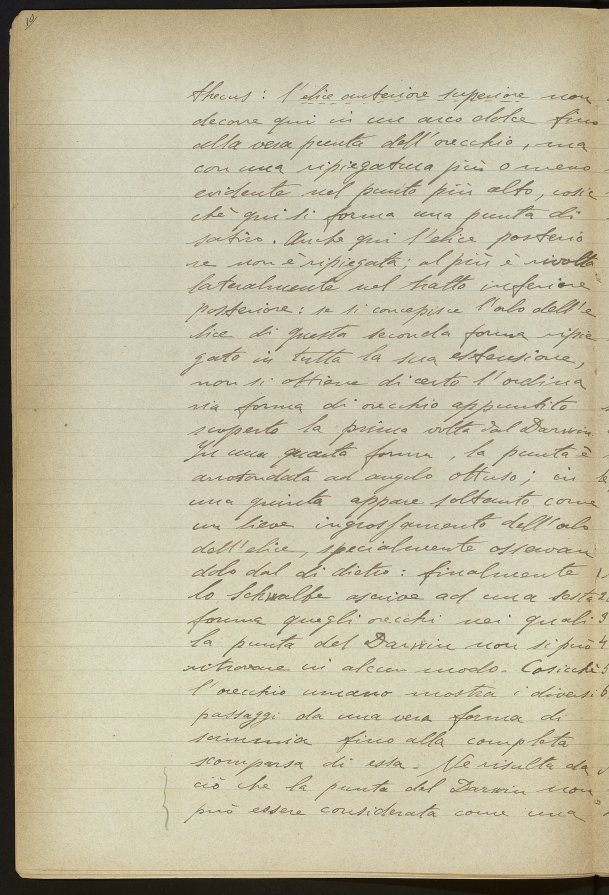 10
thecus: l'elice anteriore superiore non
decorre qui in un arco dolce fino
alla vera punta dell'orecchio, ma
con una ripiegatura più o meno
evidente nel punto più alto, cosic
chè qui si forma una punta di
satiro. Anche qui l'elice posterio
re non è ripiegata; al più è rivolta
lateralmente nel tratto inferiore
posteriore: se si concepisce l'orlo dell'e
lice di questa seconda forma ripie
gato in tutta la sua estensione,
non si ottiene di certo l'ordina
ria forma di orecchio appuntito
scoperto la prima volta dal Darwin.
In una quarta forma, la punta è
arrotondata ad angolo ottuso; in
una quinta appare soltanto come
un lieve ingrossamento dell'orlo
dell'elice, specialmente osservan
dolo dal di dietro: finalmente
lo Schwalbe ascrive ad una sesta
forma quegli orecchi nei quali
la punta del Darwin non si può
ritrovare in alcun modo. Cosicchè
l'orecchio umano mostra i diversi
passaggi da una vera forma di
scimmia fino alla completa
scomparsa di essa. Ne risulta da
ciò che la punta del Darwin non
può essere considerata come una